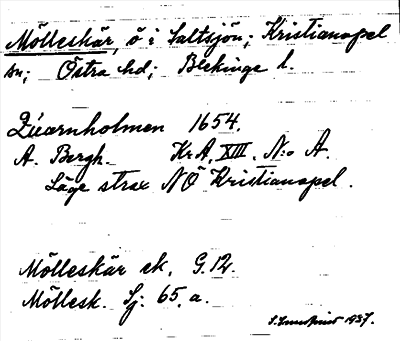 Mölleskär, ö i Saltsjön; Kristianopel
sn; Östra hd; Blekinge l.
Quarnholmen 1654.
A. Bergh. KrA, XIII. N:o A.
Läge strax NÖ Kristianopel.
Mölleskär ek. G.12.
Möllesk. Sj: 65, a.
1937.